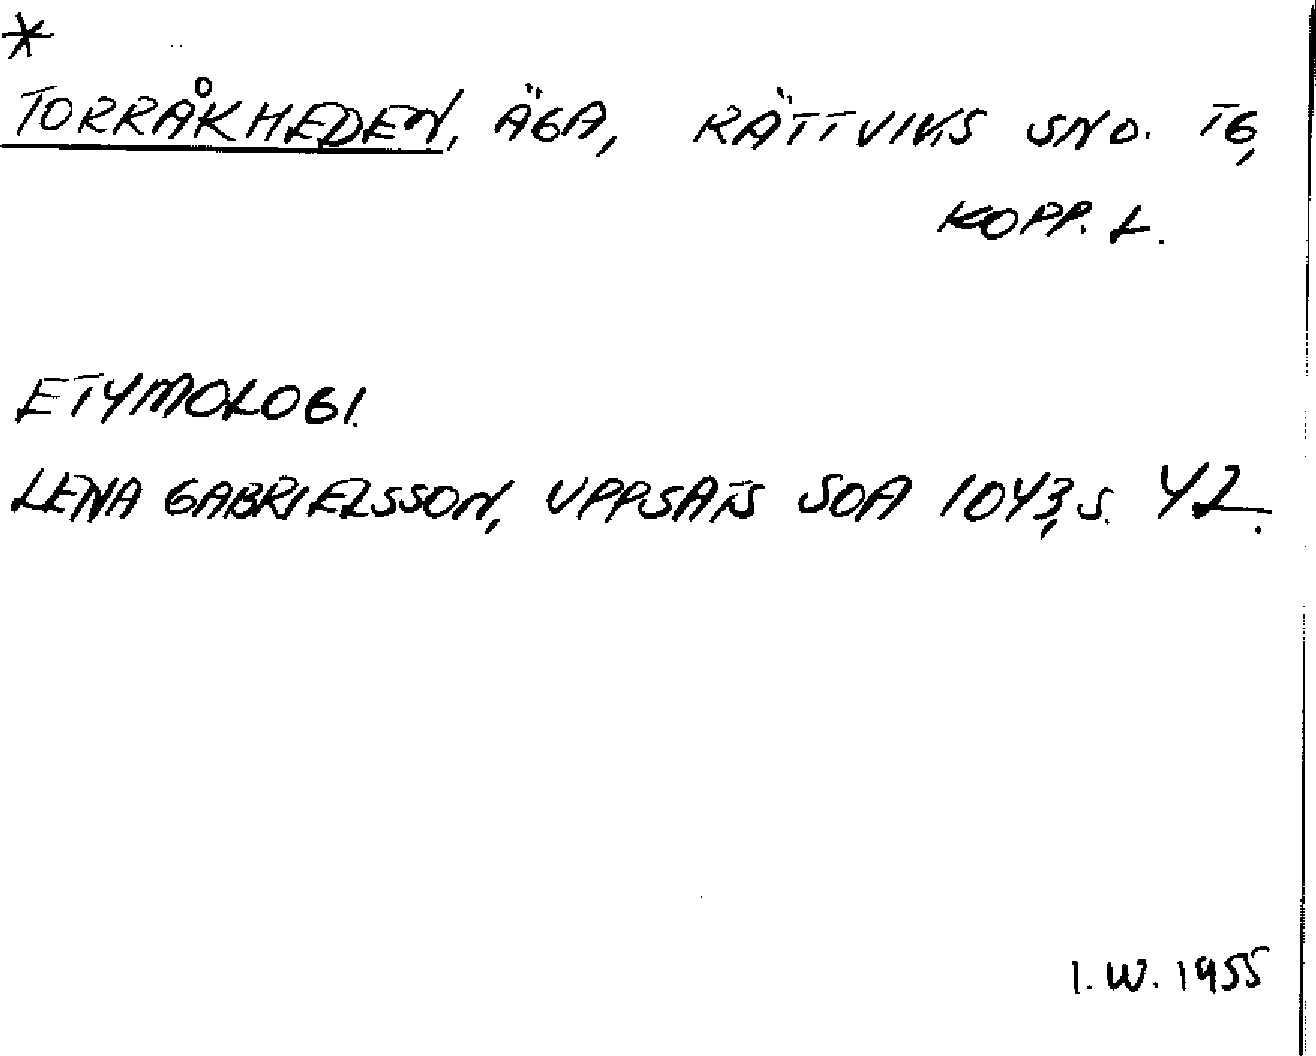 *
TORRÅKHEDEN, ÄGA, RÄTTVIKS SND. TG,
KOPP. L.
ETYMOLOGI.
LENA GABRIELSSON, UPPSATS SOA 1043, S. 42.
I.W. 1955